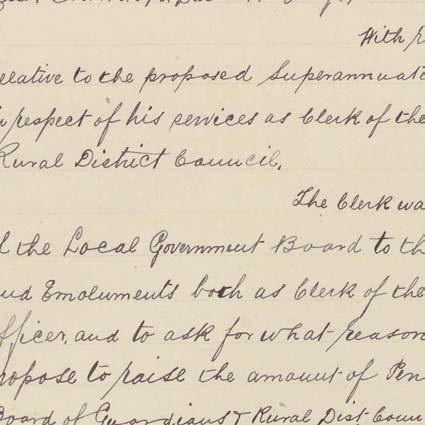 With
relative to the proposed Superannuat
respect of his services as Clerk of the
Rural District Council.
The Clerk wa
the Local Government Board to th
and Emoluments both as Clerk of the
Officer, and to ask for what reason
propose to raise the amount of Pen
Board of Guardians & Rural Dist. Coun